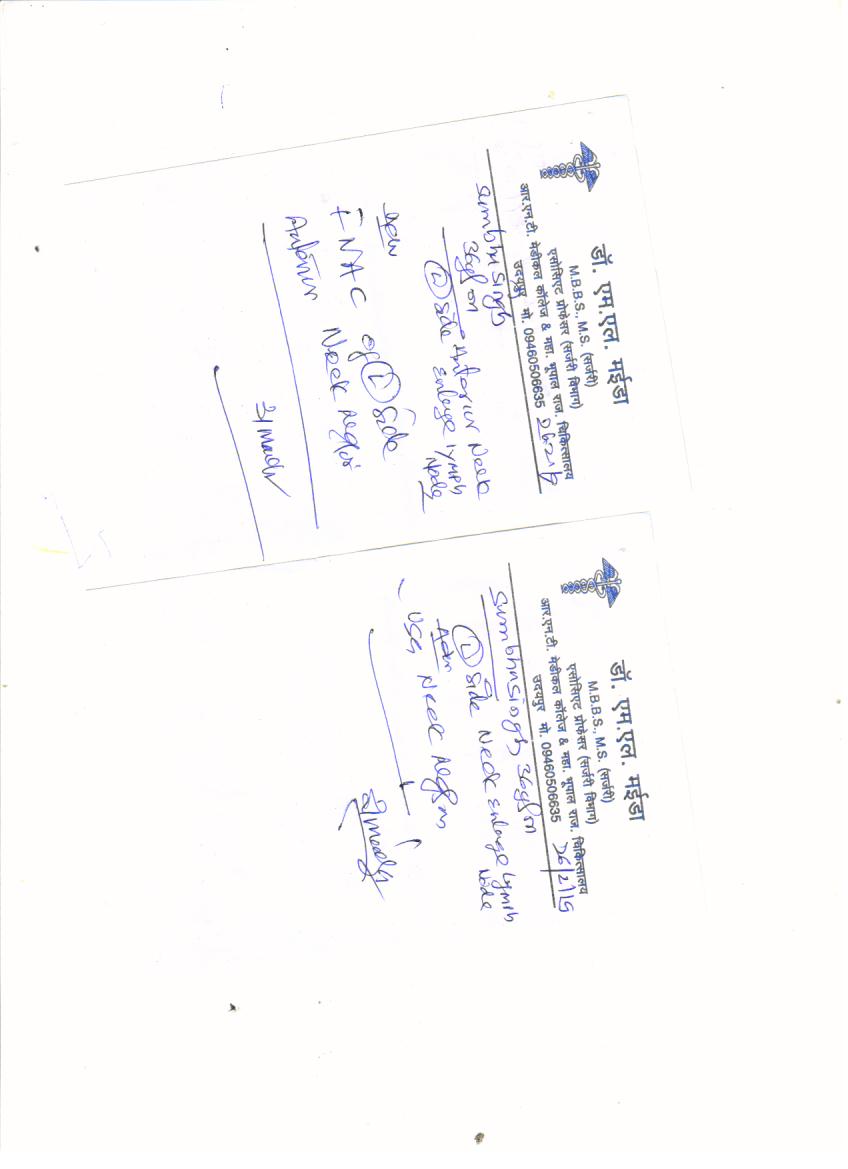 डॉ. एम.एल. मईडा
M.B.B.S., M.S. (सर्जरी)
एसोसिएट प्रोफेसर (सर्जरी विभाग)
आर.एन.टी. मेडीकल कॉलेज & महा. भूपाल राज. चिकित्सालय
उदयपुर मो. 09460506635
Sumbhu Singh
36y/m
(L) Side Anterior Neck
enlarge lymph
Node
Adv
FNAC of (L) Side
Neck Region
Anterior
डॉ. एम.एल. मईडा
M.B.B.S., M.S. (सर्जरी)
एसोसिएट प्रोफेसर (सर्जरी विभाग)
आर.एन.टी. मेडीकल कॉलेज & महा. भूपाल राज. चिकित्सालय
उदयपुर मो. 09460506635 26/2/15
Sumbhu Singh 36y/m
(L) Side Neck enlarge lymph
Node
Adv
- USG Neck Region